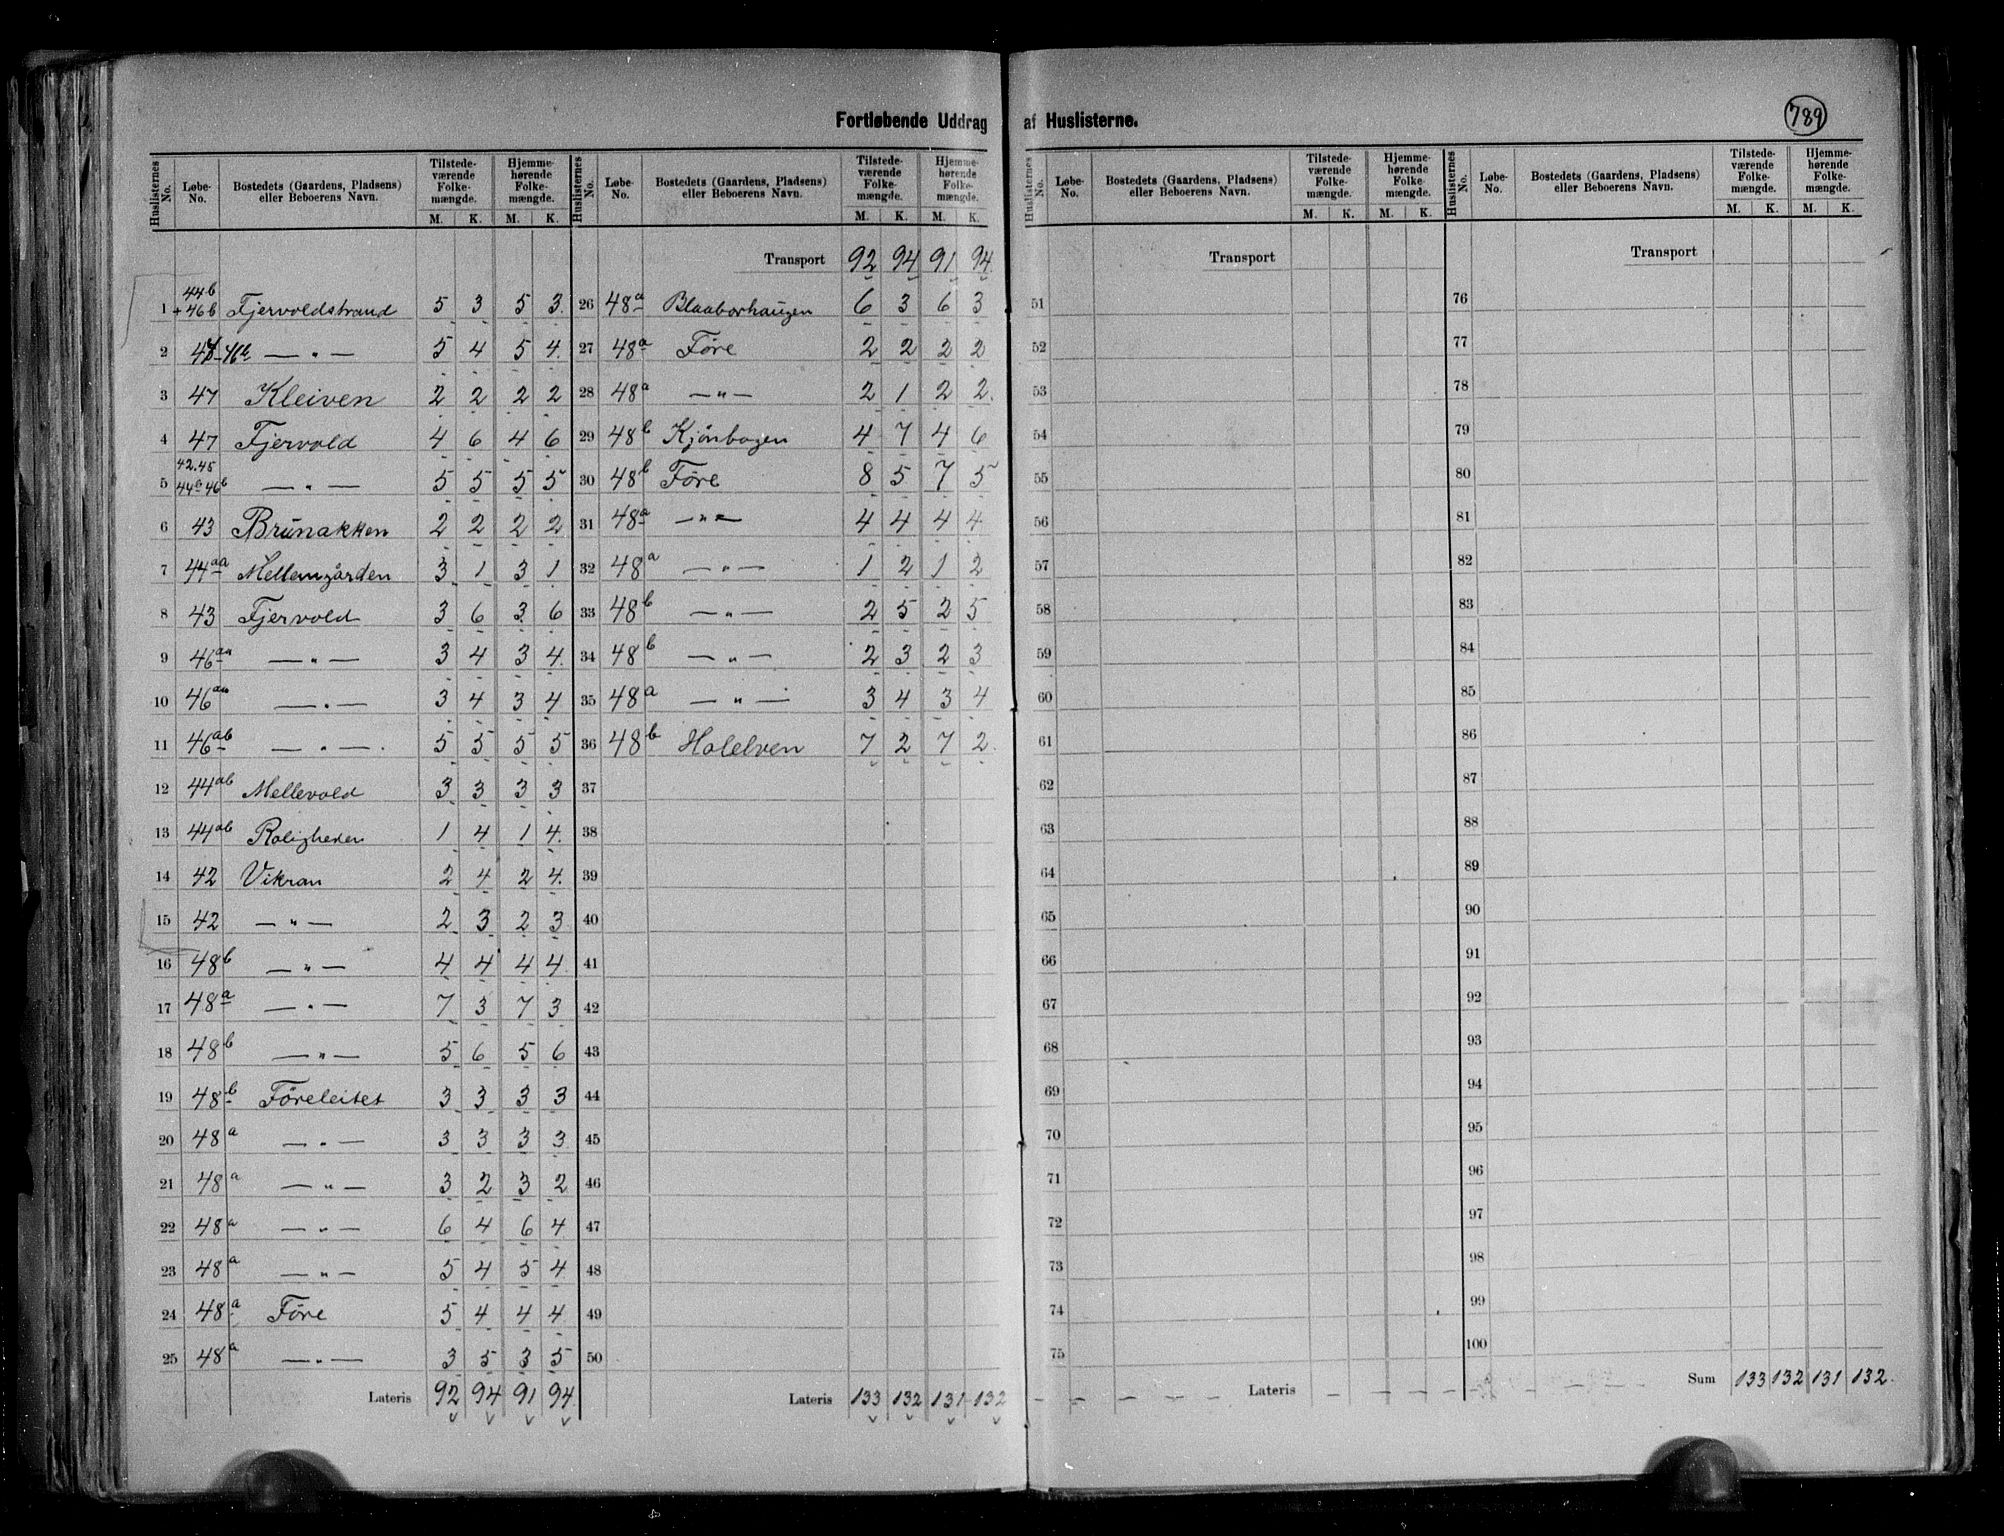 Fortløbende Uddrag af Huslisterne.
789
Huslisternes No. | Løbe-No. | Bostedets (Gaardens, Pladsen) eller Beboerens Navn. | Tilstedeværende Folkemængde. M. K. | Hjemmehørende Folkemængde. M. K.
1 44b + 46b Fjervoldstrand 5 3 5 3
2 — " — 5 4 5 4
3 47 Kleiven 2 2 2 2
4 47 Fjervold 4 6 4 6
5 42.45 44a 46b — " — 5 5 5 5
6 43 Brunakken 2 2 2 2
7 44aa Mellemgården 3 1 3 1
8 43 Fjervold 3 6 3 6
9 46aa — " — 3 4 3 4
10 46aa — " — 3 4 3 4
11 46ab — " — 5 5 5 5
12 44ab Mellevold 3 3 3 3
13 44ab Roligheden 1 4 1 4
14 42 Vikran 2 4 2 4
15 42 — " — 2 3 2 3
16 48b — " — 4 4 4 4
17 48a — " — 7 3 7 3
18 48b — " — 5 6 5 6
19 48b Föreleitet 3 3 3 3
20 48a — " — 3 3 3 3
21 48a — " — 3 2 3 2
22 48a — " — 6 4 6 4
23 48a — " — 5 4 5 4
24 48a Före 5 4 4 4
25 48a — " — 3 5 3 5
Lateris 92 94 91 94
Huslisternes No. | Løbe-No. | Bostedets (Gaardens, Pladsen) eller Beboerens Navn. | Tilstedeværende Folkemængde. M. K. | Hjemmehørende Folkemængde. M. K.
Transport 92 94 91 94
26 48a Blaaborhaugen 6 3 6 3
27 48a Före 2 2 2 2
28 48a — " — 2 1 2 2
29 48b Kjönbogen 4 7 4 6
30 48b Före 8 5 7 5
31 48a — " — 4 4 4 4
32 48a — " — 1 2 1 2
33 48b — " — 2 5 2 5
34 48b — " — 2 3 2 3
35 48a — " — 3 4 3 4
36 48b Holelven 7 2 7 2
37
38
39
40
41
42
43
44
45
46
47
48
49
50
Lateris 133 132 131 132
Huslisternes No. | Løbe-No. | Bostedets (Gaardens, Pladsen) eller Beboerens Navn. | Tilstedeværende Folkemængde. M. K. | Hjemmehørende Folkemængde. M. K.
Transport
51
52
53
54
55
56
57
58
59
60
61
62
63
64
65
66
67
68
69
70
71
72
73
74
75
Lateris — — — —
Huslisternes No. | Løbe-No. | Bostedets (Gaardens, Pladsen) eller Beboerens Navn. | Tilstedeværende Folkemængde. M. K. | Hjemmehørende Folkemængde. M. K.
Transport
76
77
78
79
80
81
82
83
84
85
86
87
88
89
90
91
92
93
94
95
96
97
98
99
100
Sum 133 132 131 132